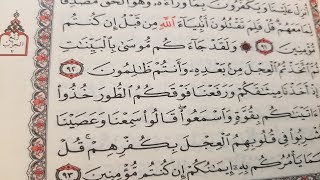 أُنزِلَ عَلَيْنَا وَيَكْفُرُونَ بِمَا وَرَآءَهُۥ وَهُوَ ٱلْحَقُّ مُصَدِّقًا
لِّمَا مَعَهُمْ قُلْ فَلِمَ تَقْتُلُونَ أَنۢبِيَآءَ ٱللَّهِ مِن قَبْلُ إِن كُنتُم
مُّؤْمِنِينَ ٩١ وَلَقَدْ جَآءَكُم مُّوسَىٰ بِٱلْبَيِّنَٰتِ
ثُمَّ ٱتَّخَذْتُمُ ٱلْعِجْلَ مِنۢ بَعْدِهِۦ وَأَنتُمْ ظَٰلِمُونَ ٩٢
وَإِذْ أَخَذْنَا مِيثَٰقَكُمْ وَرَفَعْنَا فَوْقَكُمُ ٱلطُّورَ خُذُوا۟
مَآ ءَاتَيْنَٰكُم بِقُوَّةٍ وَٱسْمَعُوا۟ قَالُوا۟ سَمِعْنَا وَعَصَيْنَا
وَأُشْرِبُوا۟ فِى قُلُوبِهِمُ ٱلْعِجْلَ بِكُفْرِهِمْ قُلْ
بِئْسَمَا يَأْمُرُكُم بِهِۦٓ إِيمَٰنُكُمْ إِن كُنتُم مُّؤْمِنِينَ ٩٣